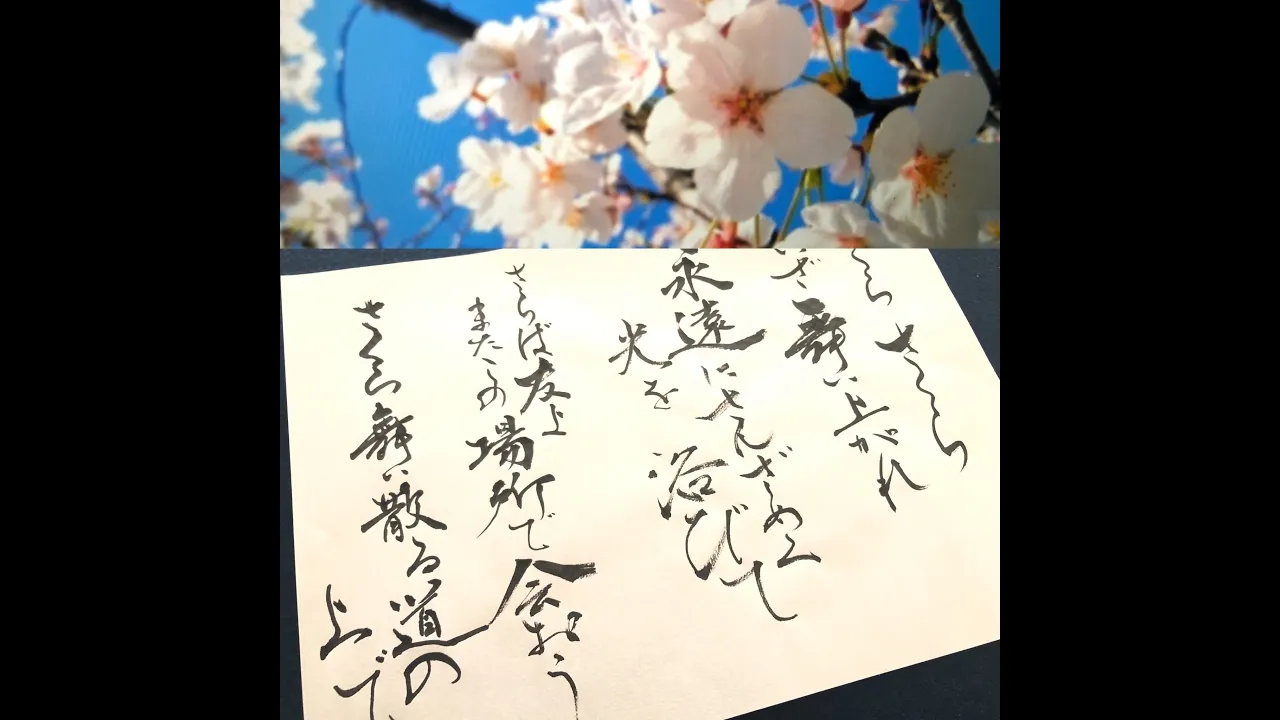 くら さくら
いざ舞い上がれ
永遠にさんざめく
光を浴びて
さらば友よ
またこの場所で会おう
さくら舞い散る道の
上で